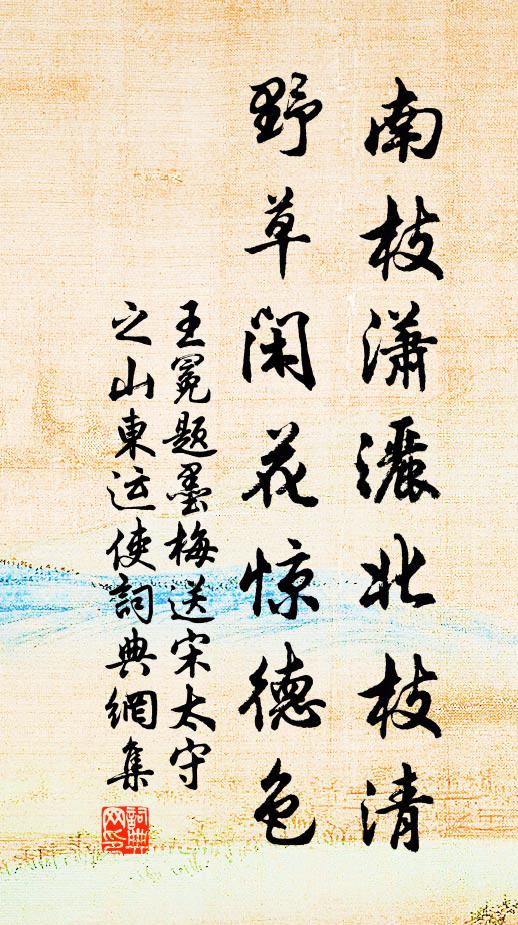 南枝潇灑北枝清
野草闲花惊德色
王冕题墨梅送宋太守
之山東运使詞典網集
詞典网印